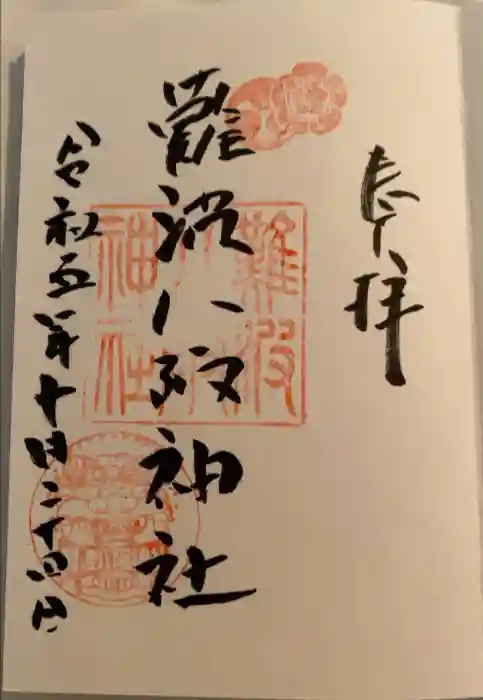 奉拝
難波八阪神社
令和五年十月二十四日
難波
神社